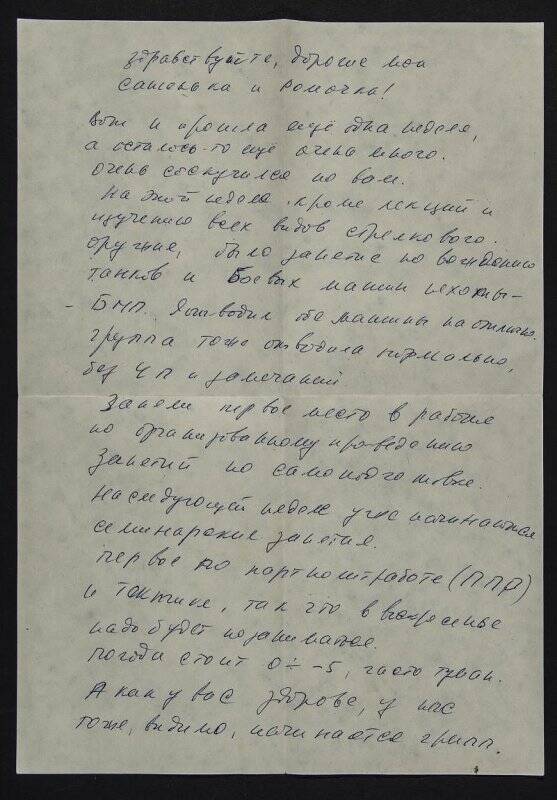 здравствуйте, дорогие мои
Сашенька и Ромочка!
Вот и прошла ещё одна неделя,
а осталось-то ещё очень много.
Очень соскучился по вам.
На этой неделе кроме лекций и
изучению всех видов стрелкового
оружие, было занятие по вождению
танков и Боевых машин пехоты-
- БМП. Я отводил обе машины на отлично.
группа тоже отводила нормально,
без ЧП и замечаний
Заняли первое место в
по организованному проведению
занятий по самоподготовке.
На следующей неделе уже начинаются
семинарские занятия.
первое по партполитработе (ППР)
и тактике, так что в воскресенье
надо будет позаниматся.
погода стоит 0 ÷ -5, часто туман.
А как у вас здоровье, у нас
тоже, видимо, начинается грипп.